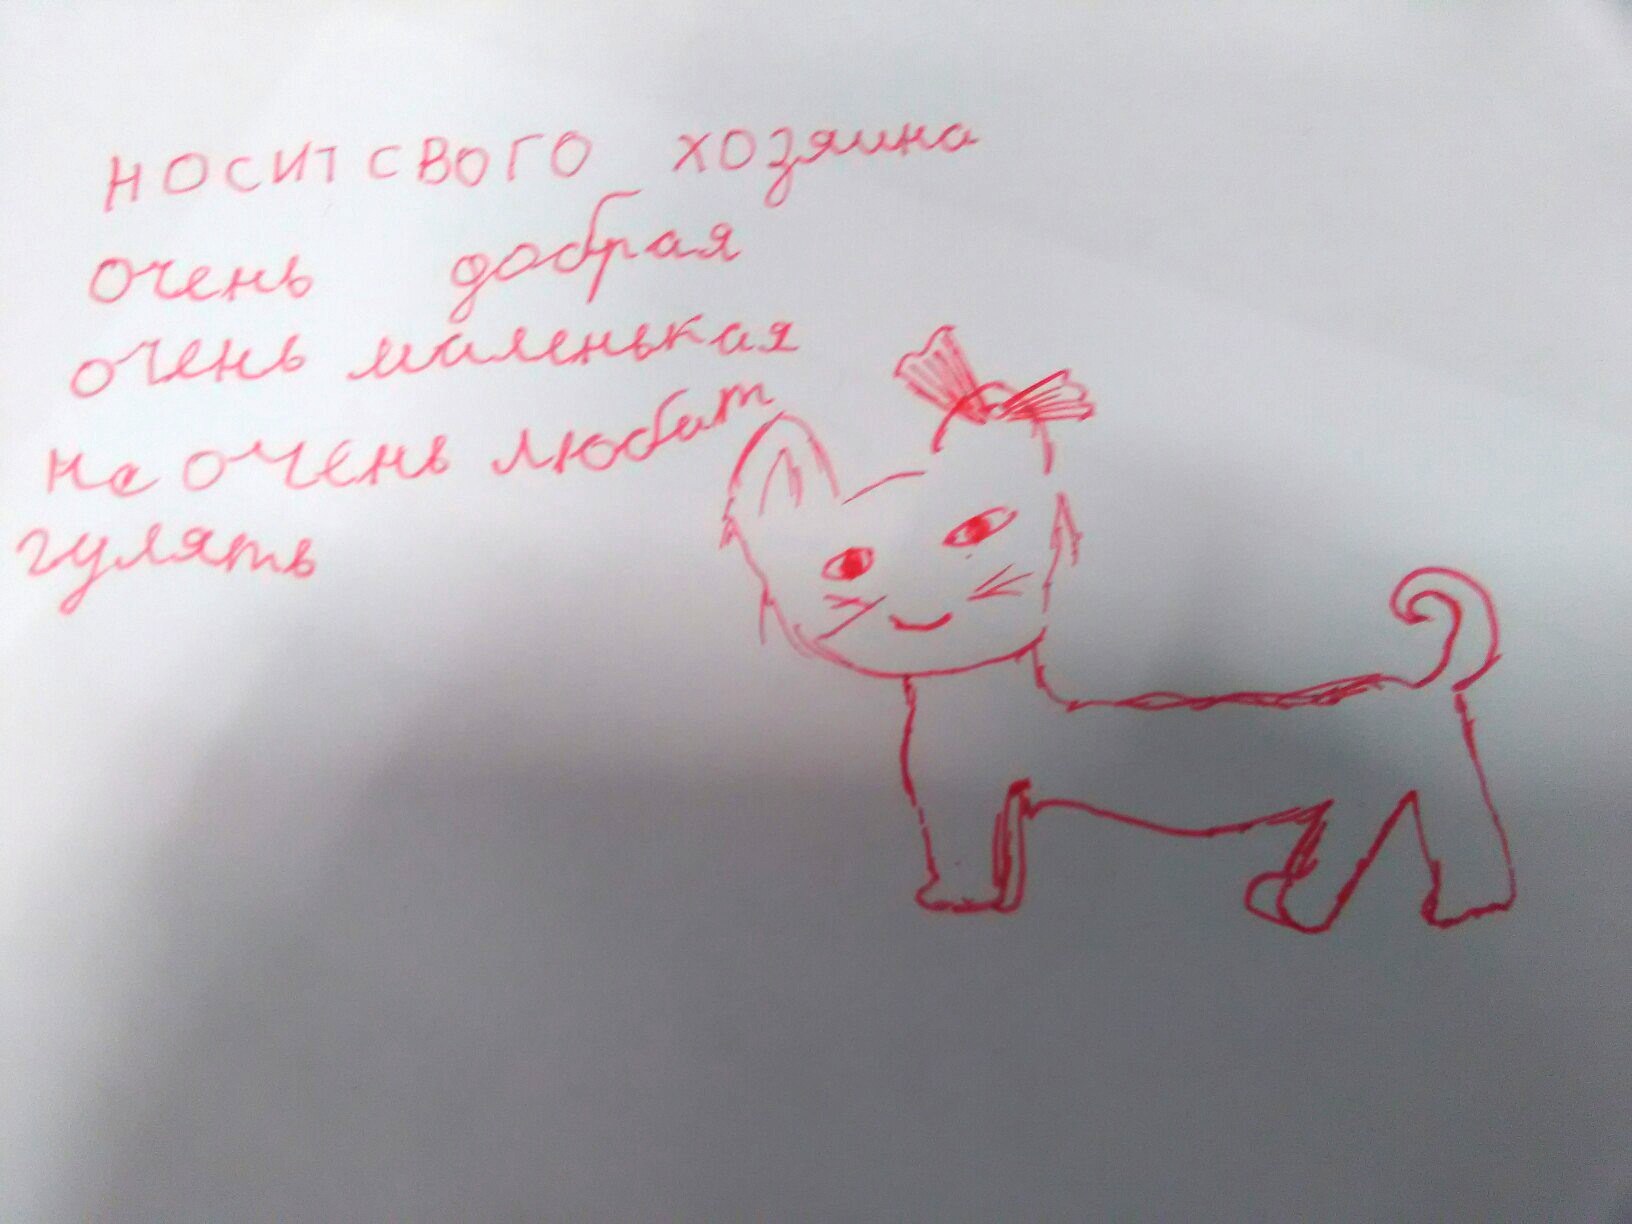 носит свого хозяина
очень добрая
очень маленькая
не очень любит
гулять